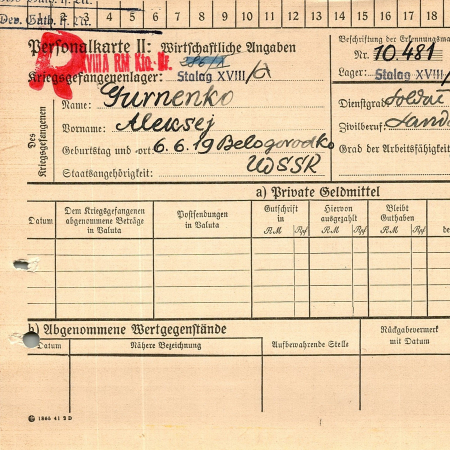 Der. Gutb. f. Nr.
1 2 3 4 5 6 7 8 9 10 11 12 13 14 15 16 17 18
Personalkarte II: Wirtschaftliche Angaben
Beschriftung der Erkennungsma
XVIIIA RM Kto. Nr.
Nr. 10.481
Kriegsgefangenenlager: Stalag XVIII/A
Lager: Stalag XVIII/
Des Kriegsgefangenen
Name: Gurnenko
Dienstgrad: Soldat
Vorname: Aleksej
Zivilberuf: Land
Geburtstag und -ort: 6.6.19 Belogorodko
Grad der Arbeitsfähigkeit
Staatsangehörigkeit: UdSSR
a) Private Geldmittel
Datum
Dem Kriegsgefangenen abgenommene Beträge in Valuta
Postsendungen in Valuta
Gutschrift in
RM Rpf
Hiervon ausgezahlt
RM Rpf
Bleibt Guthaben
RM Rpf
de
b) Abgenommene Wertgegenstände
Rückgabevermerk mit Datum
Datum
Nähere Bezeichnung
Aufbewahrende Stelle